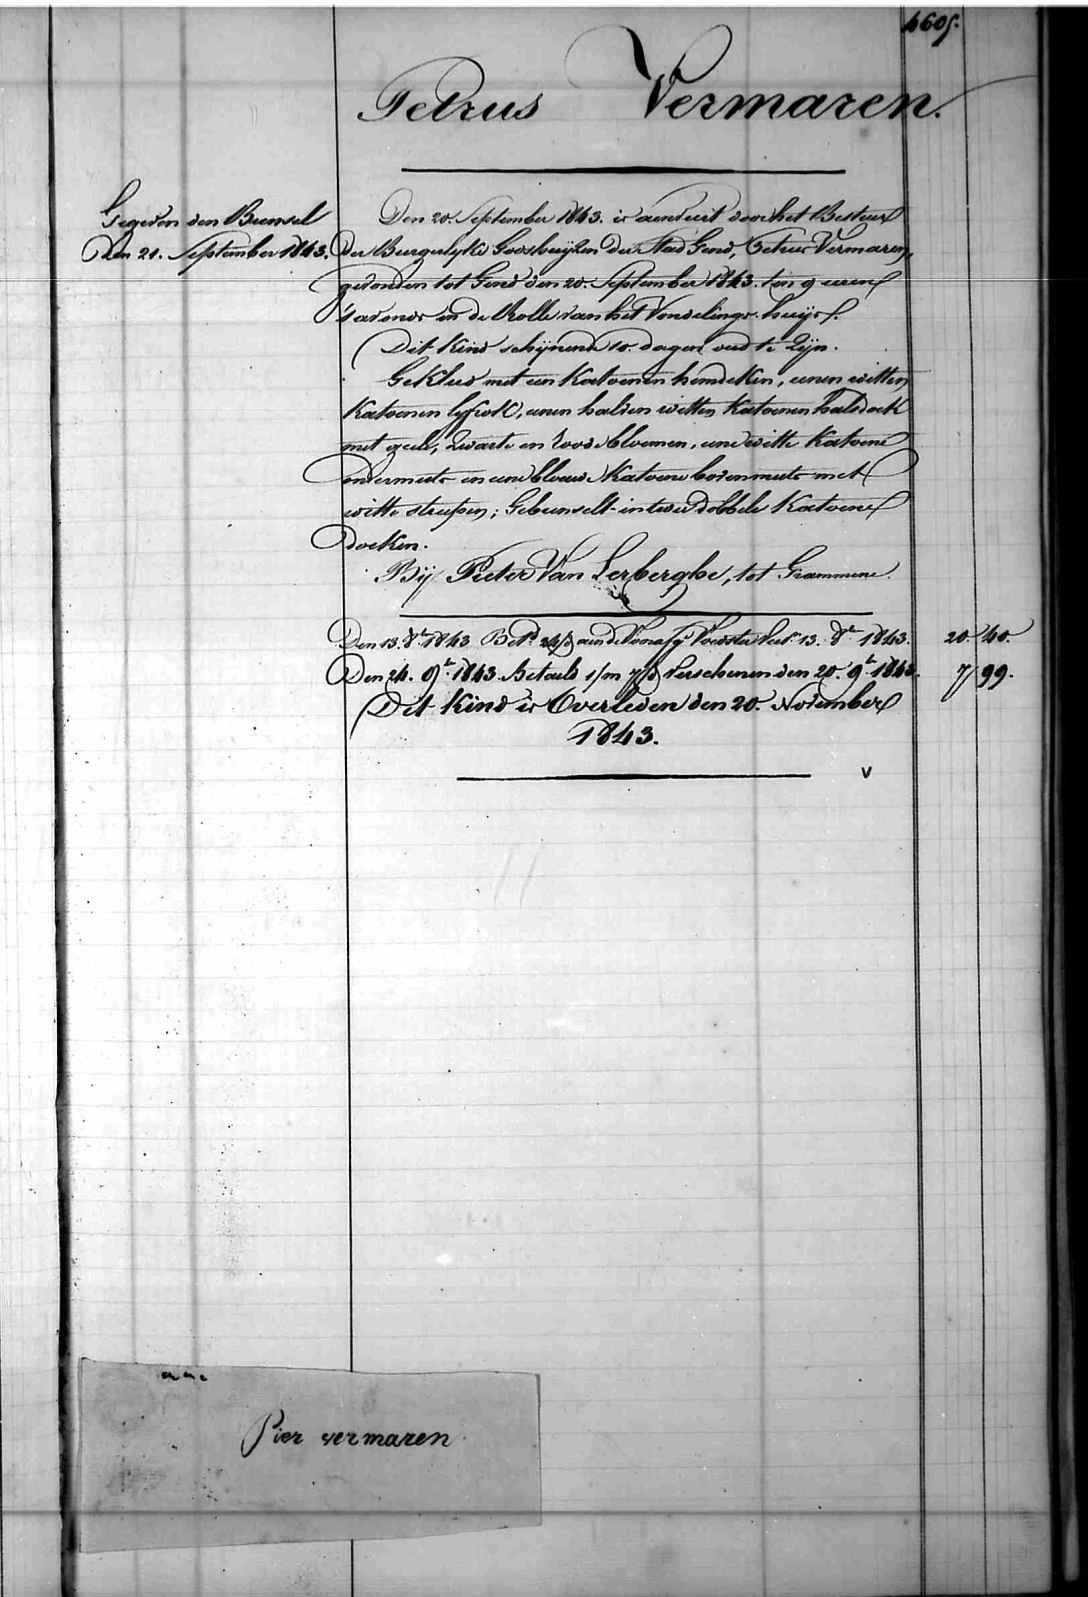 4605.
Petrus Vermaren.
Gegeven den Bunsel
Den 21. September 1843.
Den 20. September 1843. is aenveirt door het Bestuer
der Burgerlyke Godshuyzen der Stad Gend, Petrus Vermaren,
gevonden tot Gend den 20. September 1843. ten 9 uren
's avonds in de Rolle van het Vondelings-huijs.
Dit Kind schijnende 10. dagen oud te Zijn.
Gekleed met een Katoenen hemdeken, eenen witten
Katoenen lyfrok, eenen halven witten Katoenen halsdoek
met geele, Zwarte en Roode bloemen, eene witte Katoene
ondermuts en eene blauwe Katoene bovenmuts met
witte streepen; Gebunselt in twee dobbele Katoene
doeken.
Bij Pieter Van Lerberghe, tot Grammene.
Den 13. 8.r 1843 Bet.d aende Voedster 13. 8.r 1843. 20 40
Den 24. 9.r 1843. Betaeld Verschenen den 20. 9.r 1843. 7 99.
Dit Kind is Overleden den 20. November
1843.
v
Pier vermaren